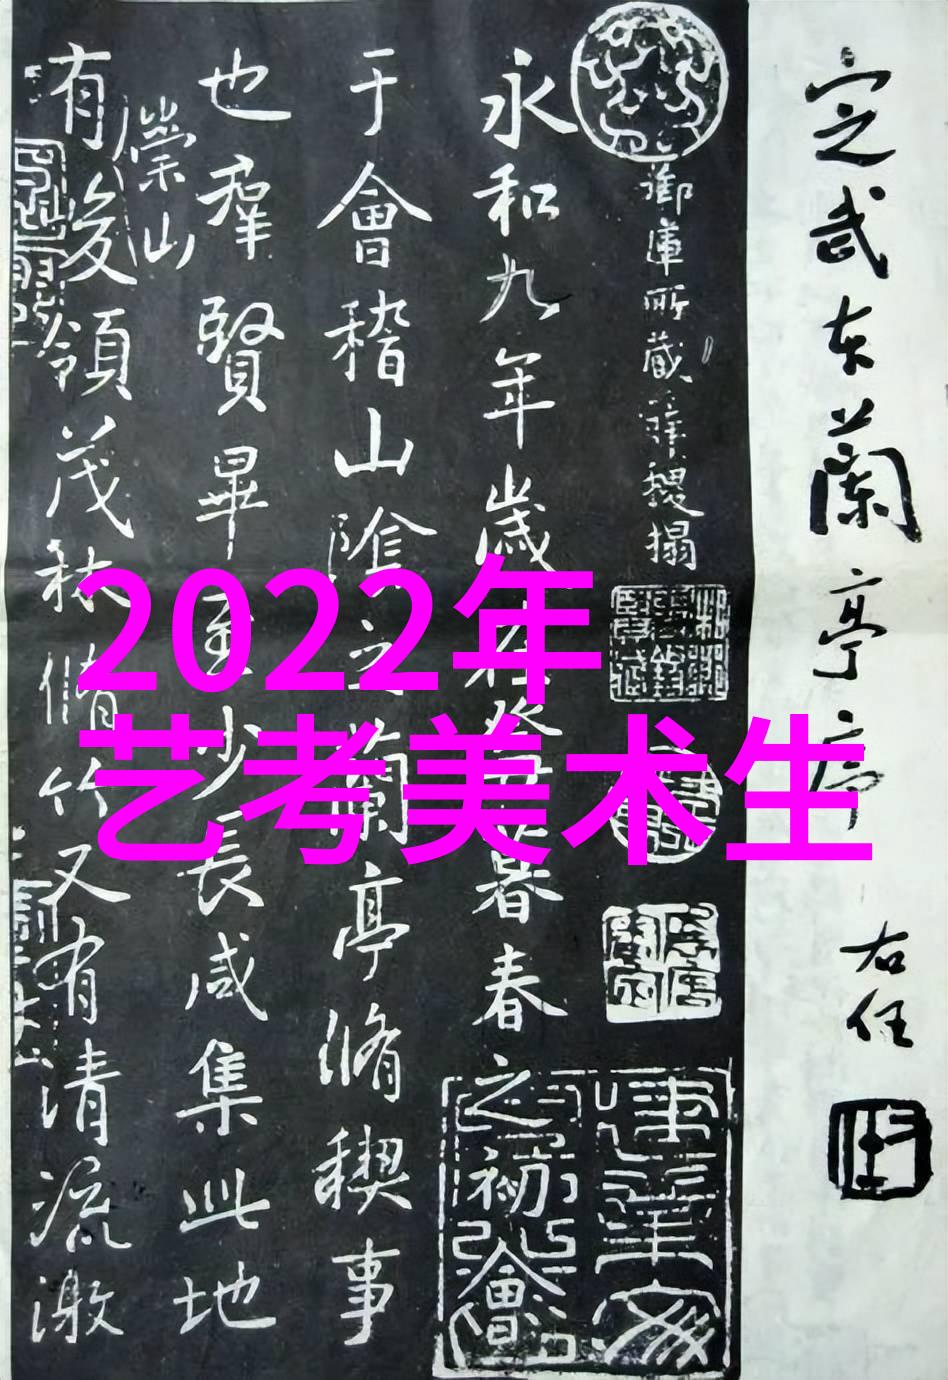 2022年
艺考美术生
定武本蘭亭序
右任
御庫所藏薛稷搨
永和九年歲在癸丑暮春之初會
于會稽山陰之蘭亭脩稧事
也羣賢畢至少長咸集此地
崇山
有峻領茂林脩竹又有清流激